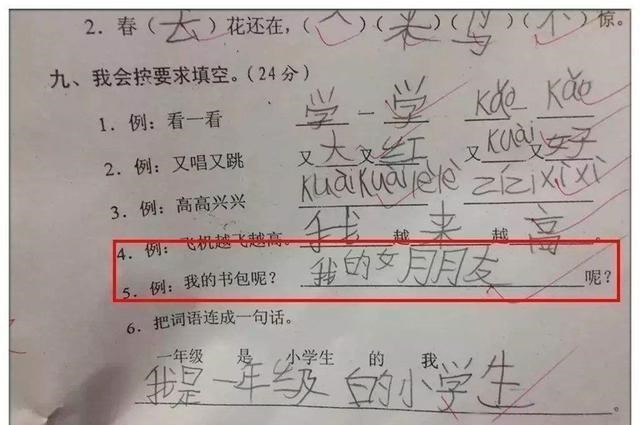 2. 春(去)花还在,(人)(来)(鸟)(不)惊。
九、我会按要求填空。(24分)
1. 例：看一看 学一学 kǎo kǎo
2. 例：又唱又跳 又大又红 又kuài又好
3. 例：高高兴兴 kuàikuàilèlè zǐzǐxìxì
4. 例：飞机越飞越高。 我越来越高。
5. 例：我的书包呢？ 我的女月朋友呢？
6. 把词语连成一句话。
一年级 是 小学生 的 我
我是一年级白的小学生